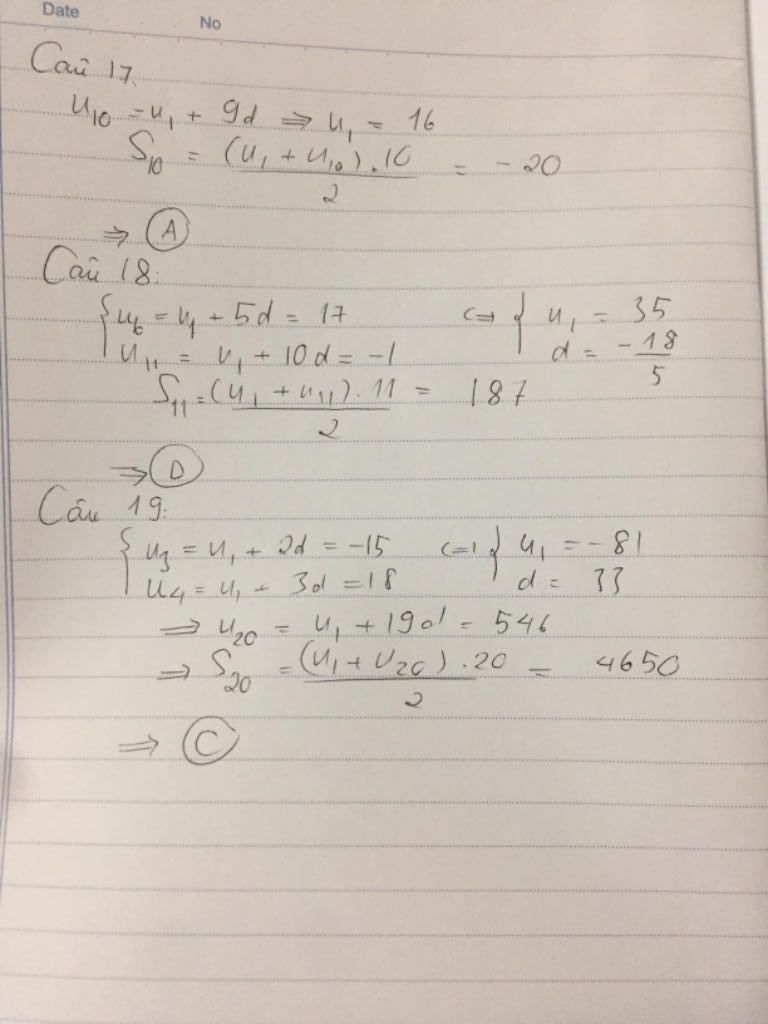 Date
No
Câu 17.
u₁₀ = u₁ + 9d ⇒ u₁ = 16
S₁₀ = (u₁ + u₁₀).10 / 2 = -20
⇒ A
Câu 18:
{ u₆ = u₁ + 5d = 17 <=> { u₁ = 35
u₁₁ = u₁ + 10d = -1 d = -18/5
S₁₁ = (u₁ + u₁₁).11 / 2 = 187
⇒ D
Câu 19:
{ u₃ = u₁ + 2d = -15 <=> { u₁ = -81
u₄ = u₁ + 3d = 18 d = 33
⇒ u₂₀ = u₁ + 19d = 546
⇒ S₂₀ = (u₁ + u₂₀).20 / 2 = 4650
⇒ C